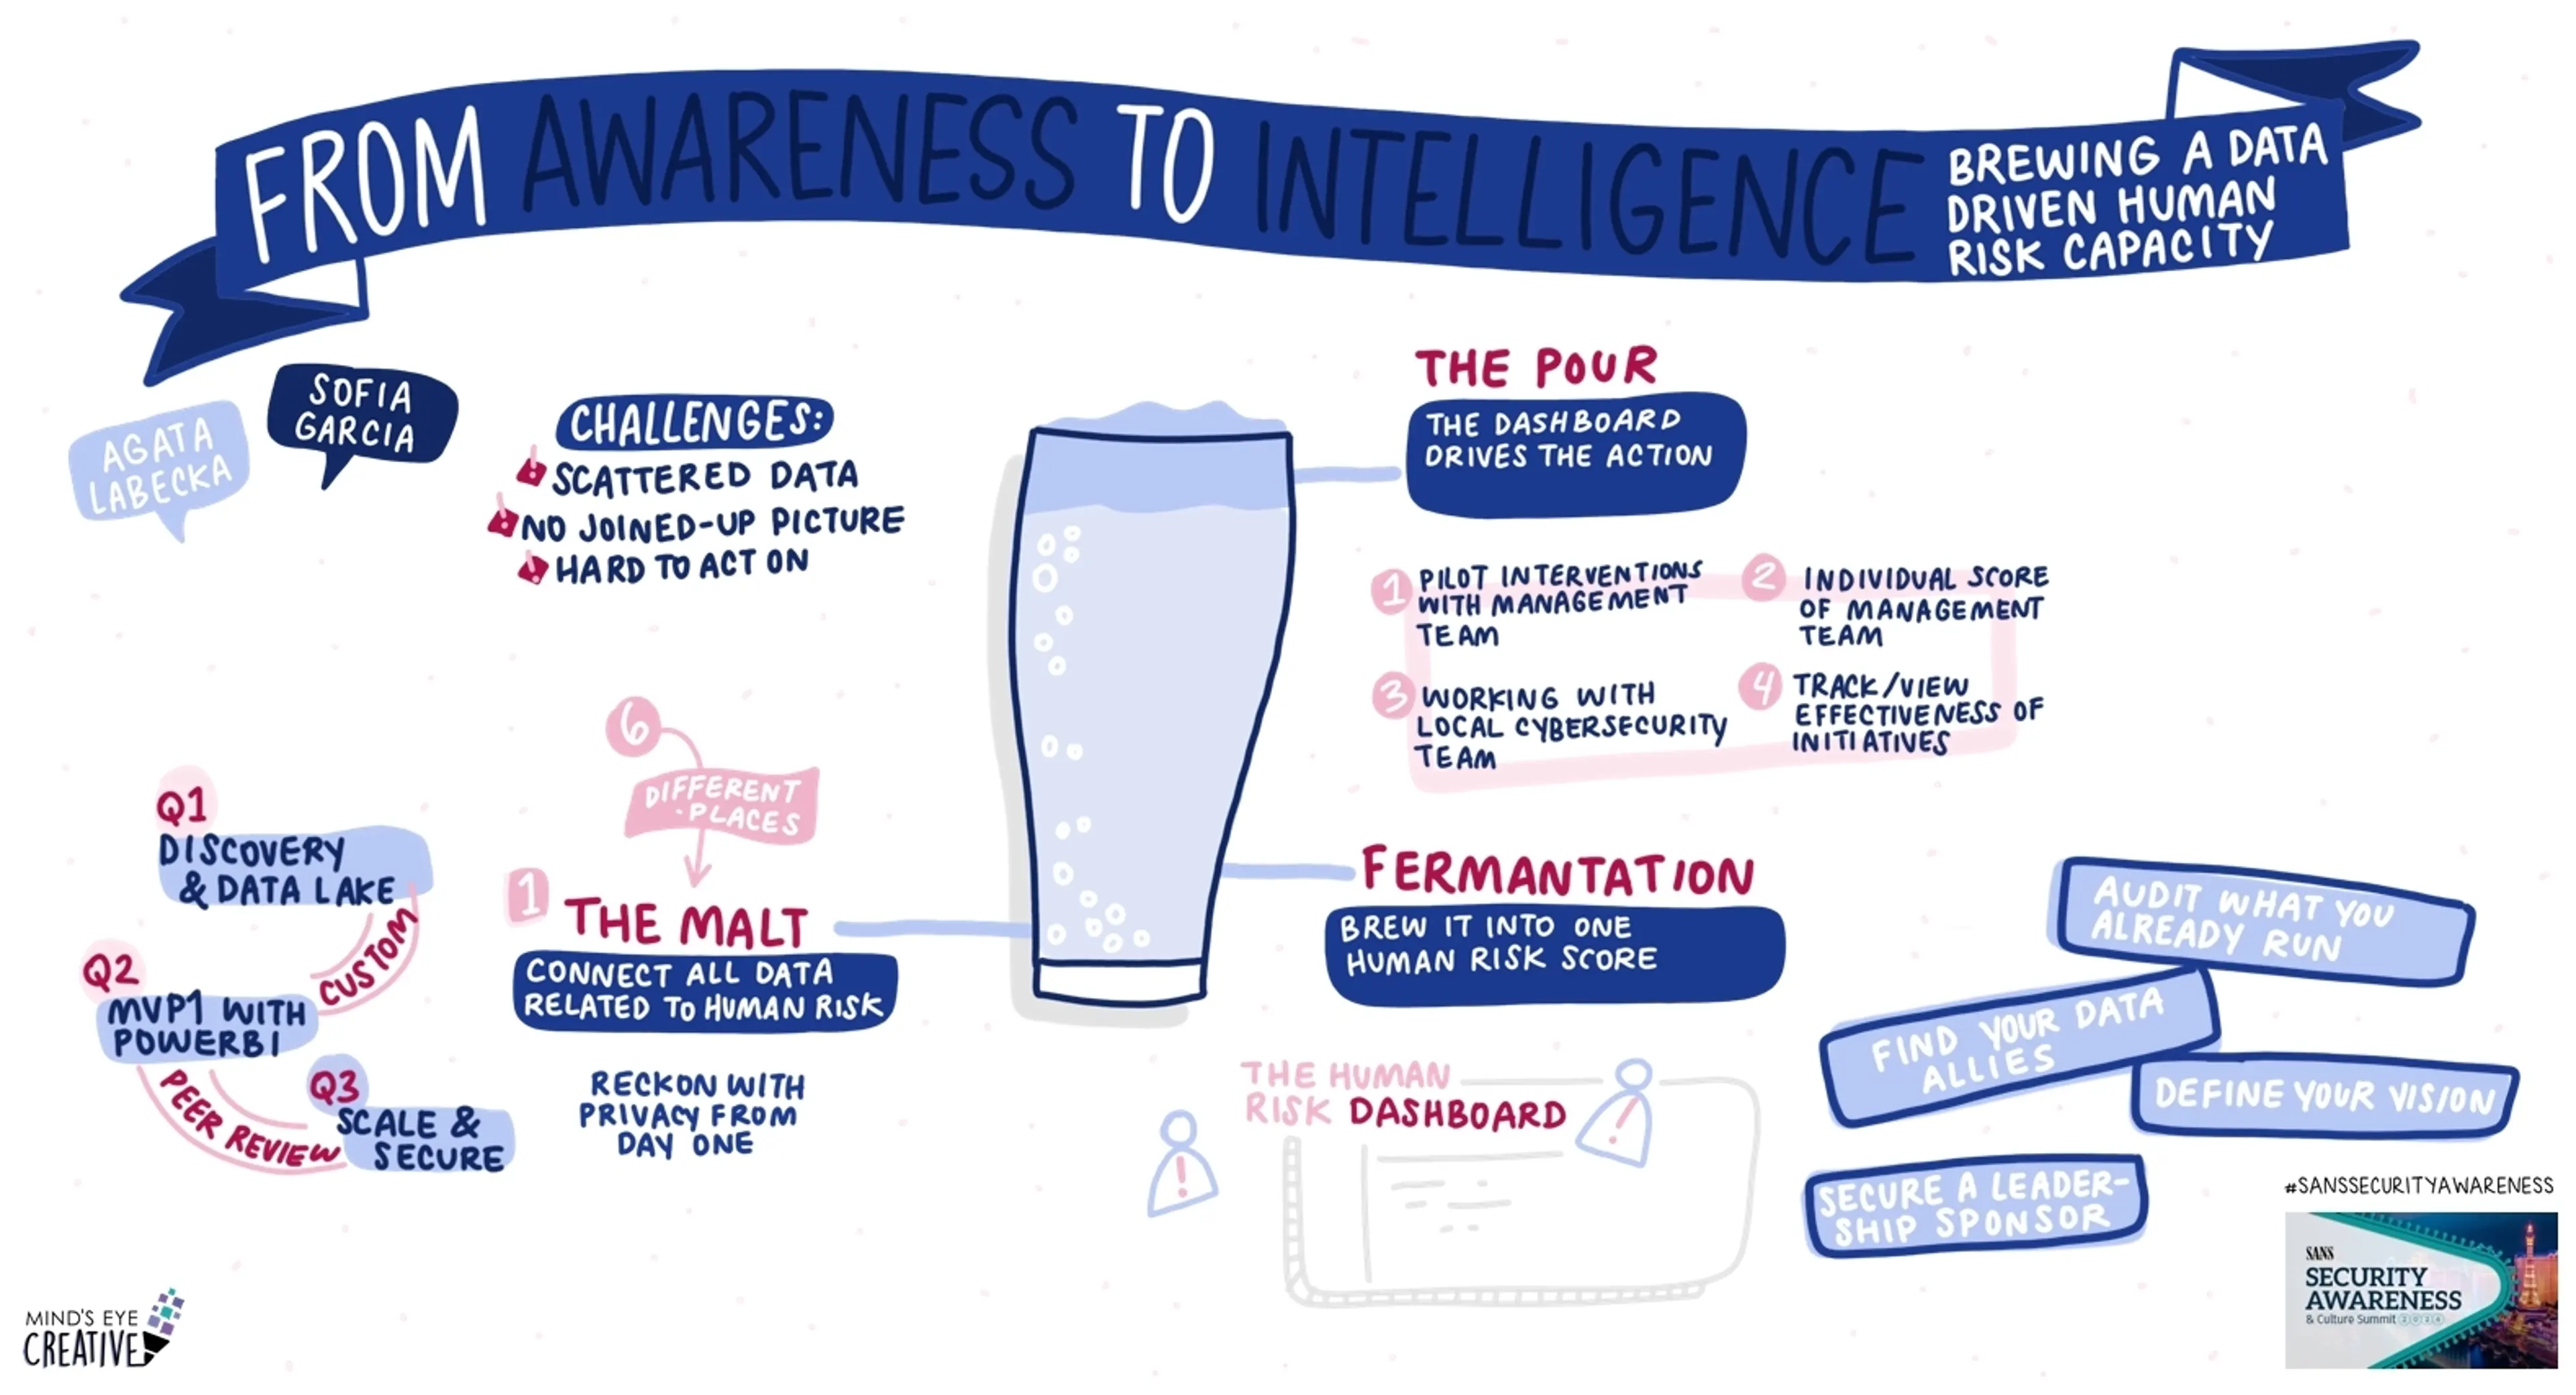 FROM AWARENESS TO INTELLIGENCE
BREWING A DATA
DRIVEN HUMAN
RISK CAPACITY
AGATA
LABECKA
SOFIA
GARCIA
CHALLENGES:
SCATTERED DATA
NO JOINED-UP PICTURE
HARD TO ACT ON
THE POUR
THE DASHBOARD
DRIVES THE ACTION
1 PILOT INTERVENTIONS
WITH MANAGEMENT
TEAM
2 INDIVIDUAL SCORE
OF MANAGEMENT
TEAM
3 WORKING WITH
LOCAL CYBERSECURITY
TEAM
4 TRACK/VIEW
EFFECTIVENESS OF
INITIATIVES
Q1
DISCOVERY
& DATA LAKE
CUSTOM
Q2
MVP1 WITH
POWERBI
PEER REVIEW
Q3
SCALE &
SECURE
6
DIFFERENT
PLACES
1 THE MALT
CONNECT ALL DATA
RELATED TO HUMAN RISK
RECKON WITH
PRIVACY FROM
DAY ONE
FERMANTATION
BREW IT INTO ONE
HUMAN RISK SCORE
THE HUMAN
RISK DASHBOARD
AUDIT WHAT YOU
ALREADY RUN
FIND YOUR DATA
ALLIES
DEFINE YOUR VISION
SECURE A LEADER-
SHIP SPONSOR
#SANSSECURITYAWARENESS
SANS
SECURITY
AWARENESS
& Culture Summit 2026
MIND'S EYE
CREATIVE